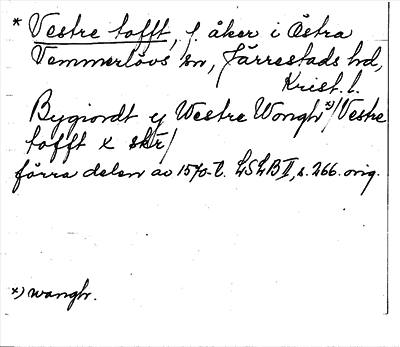 * Vestre tofft, f. åker i Östra
Vemmerlövs sn, Järrestads hd,
Krist. l.
Bygiordt y Westre Wongh *)/Vestre
tofft x sktr/
förra delen av 1570-t. LSLB II, s. 266. orig.
*) wangh.